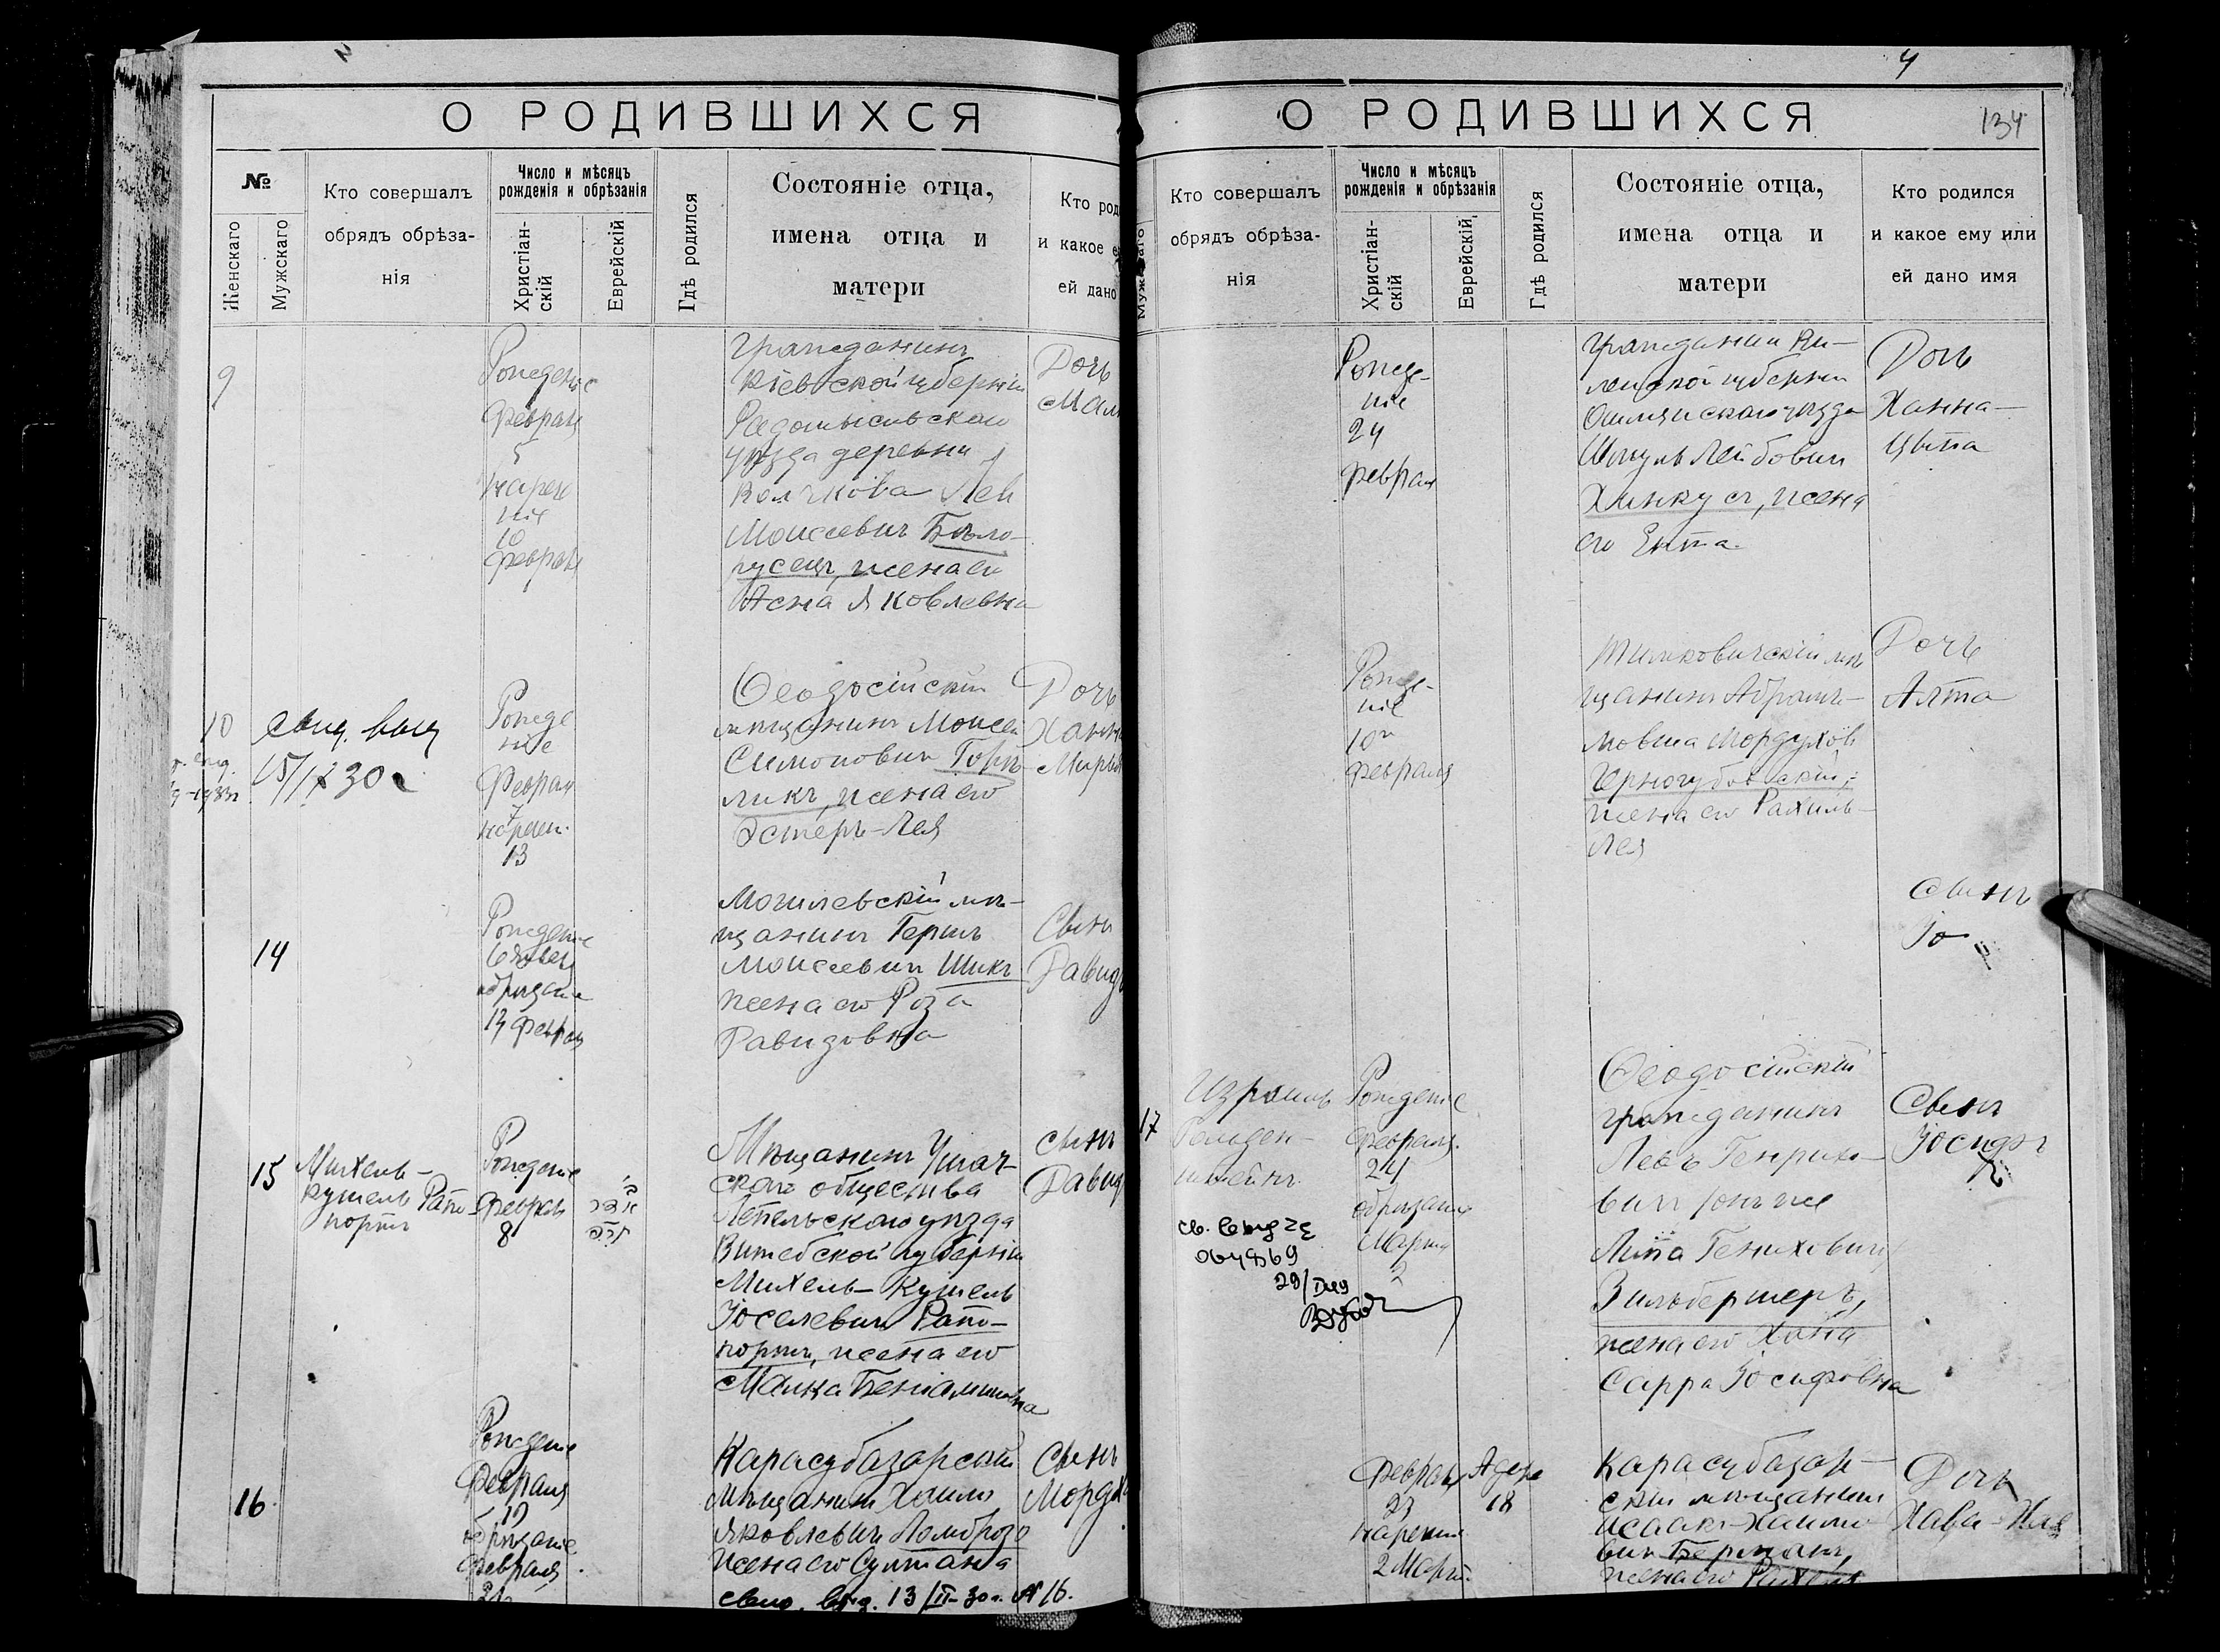 4
О РОДИВШИХСЯ
№
Женскаго
Мужскаго
Кто совершалъ
обрядъ обрѣза-
нія
Число и мѣсяцъ
рожденія и обрѣзанія
Христіан-
скій
Еврейскій
Гдѣ родился
Состояніе отца,
имена отца и
матери
Кто род
и какое е
ей дано
9
Рождение
Февраля
5
Нарече
ніе
10
Февраля
Гражданинъ
Кіевской губерніи
Радомысльскаго
уѣзда деревни
Волчкова Лев
Моисеевичъ Бѣло-
русецъ, жена его
Асна Яковлевна
Дочь
10
свид. выд
15/IX 30 г
Рожде
ніе
Февраля
7
нареч.
13
Ѳеодосійскій
мѣщанинъ Моисей
Симонович Горе-
ликъ, жена его
Эстеръ-Лея
Дочь
Ханна
Мирьям
14
Рождение
6 Февраля
обрѣзание
13 Февраля
Могилевскій мѣ-
щанинъ Гершъ
Моисеевич Шикъ
жена его Роза
Давидовна
Сынъ
Давидъ
15
Михель-
Кушель Рапо-
портъ
Рождение
Февраля
8
Мѣщанинъ Ушач-
скаго общества
Лепельскаго уѣзда
Витебской губерніи
Михель-Кушель
Іоселевичъ Рапо-
портъ, жена его
Малка Беніаминовна
Сынъ
Давид
16
Рождение
Февраля
обрѣзание
Февраля
Карасубазарскій
мѣщанинъ Хаимъ
Яковлевичъ Ломброзо
жена его Султана
Сынъ
Мордх
свид. выд. 13/II-30 г. № 16.
4
134
О РОДИВШИХСЯ
Мужскаго
Кто совершалъ
обрядъ обрѣза-
нія
Число и мѣсяцъ
рожденія и обрѣзанія
Христіан-
скій
Еврейскій
Гдѣ родился
Состояніе отца,
имена отца и
матери
Кто родился
и какое ему или
ей дано имя
Рожде-
ніе
24
Февраля
Гражданин Ви-
ленской губерніи
Ошмянскаго уѣзда
Шмуль Лейбович
Хинкусъ, жена
его Ента.
Дочь
Ханна-
Цыпа
Рожде-
ніе
10го
Февраля
Тимковичскій мѣ-
щанинъ Абрамъ-
Мовша Мордухов
Черногубовскій,
жена его Рахиль-
Лея
Дочь
Алта
Сынъ
Іо
17
Израиль
Гольден-
штейнъ
Рождение
Февраля
24
обрѣзание
Марта
2
Ѳеодосійскій
гражданинъ
Левъ Генрихо-
вич /онъ же
Липа Гениховичъ/
Зильбершеръ,
жена его Хана
Сарра Іосифовна
Сынъ
Іосифъ
Февраля
23
нареченіе
2 Март.
Адера
18
Карасубазар-
скій мѣщанинъ
Исаакъ-Хаимо
вич Берманъ,
жена его Рахиль
Дочь
Хава-